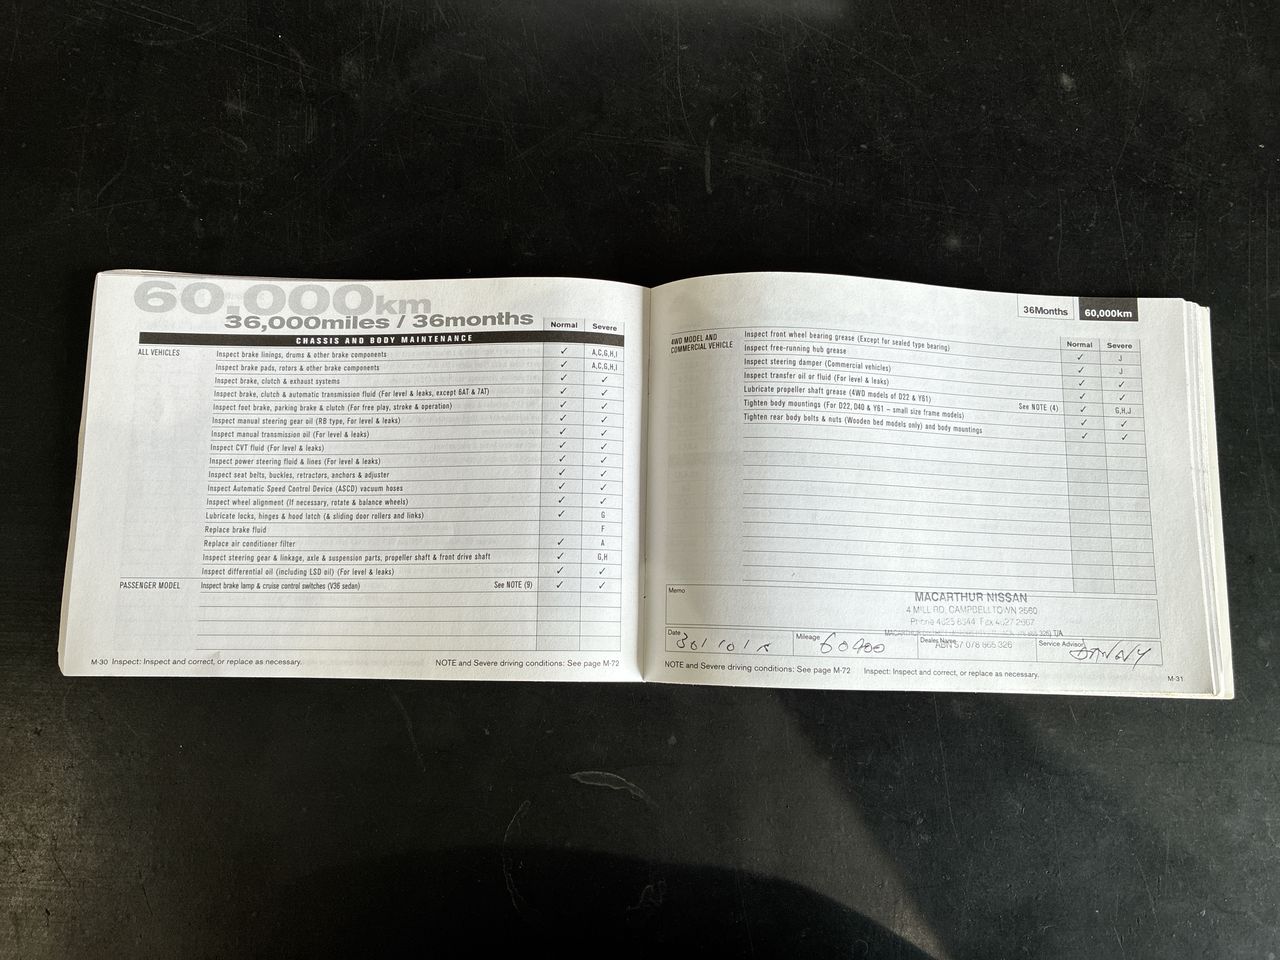 60,000km
36,000miles / 36months
Normal Severe
CHASSIS AND BODY MAINTENANCE
ALL VEHICLES
Inspect brake linings, drums & other brake components ✓ A,C,G,H,I
Inspect brake pads, rotors & other brake components ✓ A,C,G,H,I
Inspect brake, clutch & exhaust systems ✓ ✓
Inspect brake, clutch & automatic transmission fluid (For level & leaks, except 6AT & 7AT) ✓ ✓
Inspect foot brake, parking brake & clutch (For free play, stroke & operation) ✓ ✓
Inspect manual steering gear oil (RB type, For level & leaks) ✓ ✓
Inspect manual transmission oil (For level & leaks) ✓ ✓
Inspect CVT fluid (For level & leaks) ✓ ✓
Inspect power steering fluid & lines (For level & leaks) ✓ ✓
Inspect seat belts, buckles, retractors, anchors & adjuster ✓ ✓
Inspect Automatic Speed Control Device (ASCD) vacuum hoses ✓ ✓
Inspect wheel alignment (If necessary, rotate & balance wheels) ✓ ✓
Lubricate locks, hinges & hood latch (& sliding door rollers and links) ✓ G
Replace brake fluid F
Replace air conditioner filter ✓ A
Inspect steering gear & linkage, axle & suspension parts, propeller shaft & front drive shaft ✓ G,H
Inspect differential oil (including LSD oil) (For level & leaks) ✓ ✓
PASSENGER MODEL Inspect brake lamp & cruise control switches (V36 sedan) See NOTE (9) ✓ ✓
M-30 Inspect: Inspect and correct, or replace as necessary. NOTE and Severe driving conditions: See page M-72
36Months 60,000km
Normal Severe
4WD MODEL AND
COMMERCIAL VEHICLE
Inspect front wheel bearing grease (Except for sealed type bearing) ✓ J
Inspect free-running hub grease ✓ J
Inspect steering damper (Commercial vehicles) ✓ ✓
Inspect transfer oil or fluid (For level & leaks) ✓ ✓
Lubricate propeller shaft grease (4WD models of D22 & Y61) See NOTE (4) ✓ G,H,J
Tighten body mountings (For D22, D40 & Y61 – small size frame models) ✓ ✓
Tighten rear body bolts & nuts (Wooden bed models only) and body mountings ✓ ✓
Memo
MACARTHUR NISSAN
4 MILL RD, CAMPBELLTOWN 2560
Phone 4625 6344 Fax 4627 2667
T/A
ABN 57 078 865 326
Date
Mileage 60400
Dealer Name
Service Advisor DANNY
NOTE and Severe driving conditions: See page M-72 Inspect: Inspect and correct, or replace as necessary. M-31